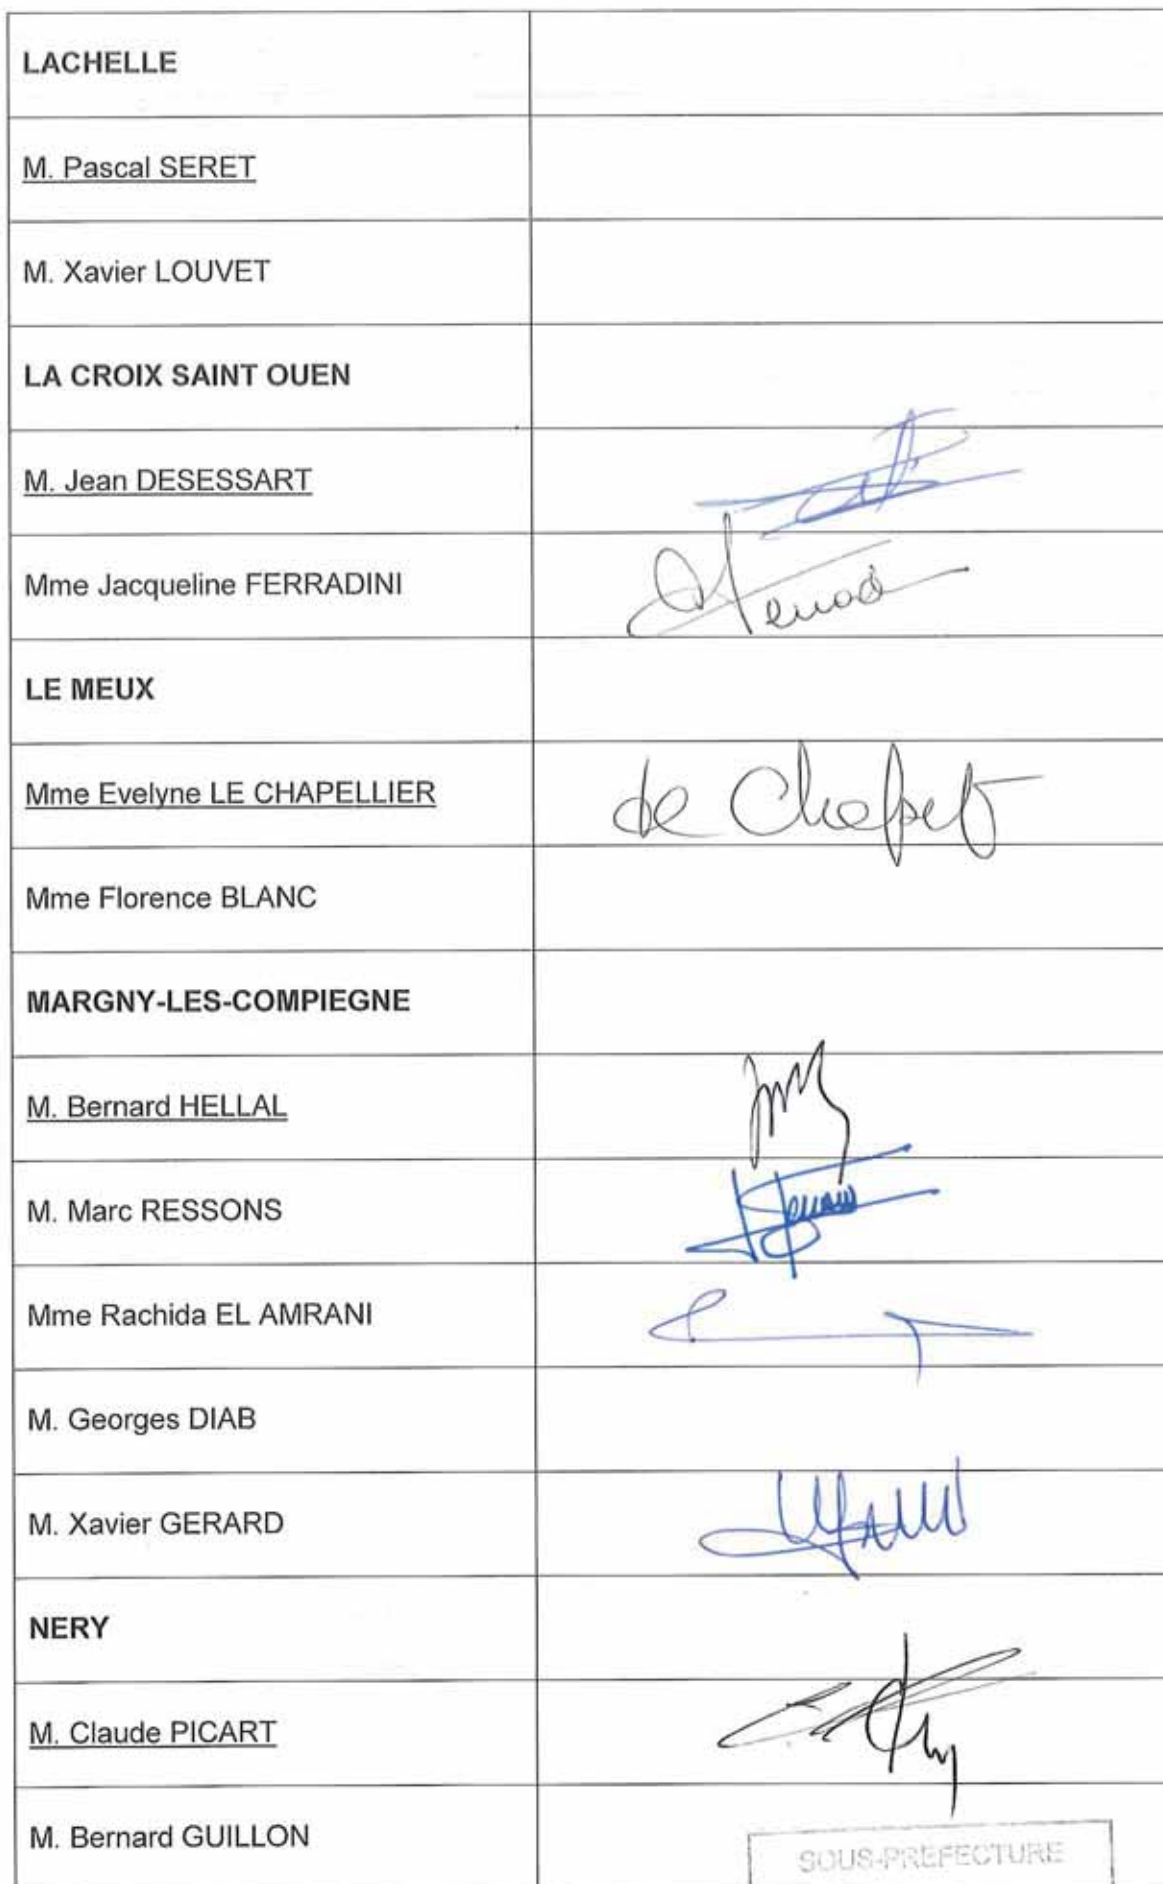 LACHELLE
M. Pascal SERET
M. Xavier LOUVET
LA CROIX SAINT OUEN
M. Jean DESESSART
Mme Jacqueline FERRADINI
LE MEUX
Mme Evelyne LE CHAPELLIER
Mme Florence BLANC
MARGNY-LES-COMPIEGNE
M. Bernard HELLAL
M. Marc RESSONS
Mme Rachida EL AMRANI
M. Georges DIAB
M. Xavier GERARD
NERY
M. Claude PICART
M. Bernard GUILLON
SOUS-PREFECTURE